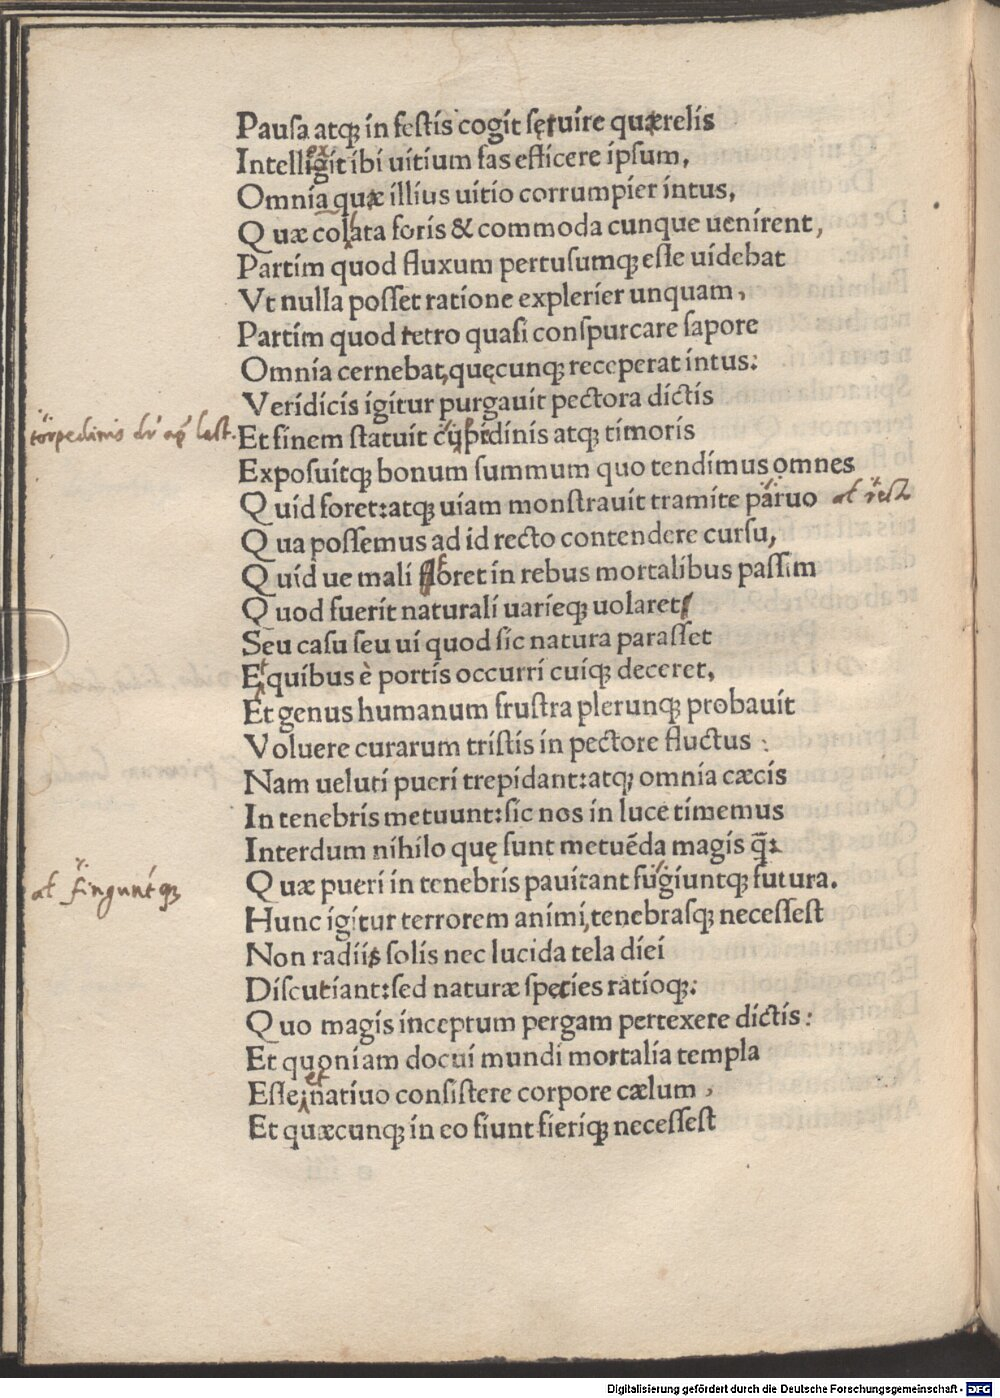 Pauſa atqꝫ in feſtis cogit ſęruire quærelis
Intelligit ibi uitium fas efficere ipſum,
Omnia quæ illius uitio corrumpier intus,
Quæ colata foris & commoda cunque uenirent,
Partim quod fluxum pertuſumqꝫ eſſe uidebat
Vt nulla poſſet ratione explerier unquam,
Partim quod tetro quaſi conſpurcare ſapore
Omnia cernebat, quęcunqꝫ receperat intus:
Veridicis igitur purgauit pectora dictis
torpedinis
Et finem ſtatuit cupidinis atqꝫ timoris
Expoſuitqꝫ bonum ſummum quo tendimus omnes
Quid foret: atqꝫ uiam monſtrauit tramite paruo
Qua poſſemus ad id recto contendere curſu,
Quid ue mali floret in rebus mortalibus paſſim
Quod fuerit naturali uarieqꝫ uolaret
Seu caſu ſeu ui quod ſic natura paraſſet
E quibus è portis occurri cuiqꝫ deceret,
Et genus humanum fruſtra plerunqꝫ probauit
Voluere curarum triſtis in pectore fluctus :
Nam ueluti pueri trepidant: atqꝫ omnia cæcis
In tenebris metuunt: ſic nos in luce timemus
Interdum nihilo quę ſunt metuẽda magis q̃:
al finguntqꝫ
Quæ pueri in tenebris pauitant fugiuntqꝫ futura.
Hunc igitur terrorem animi, tenebraſqꝫ neceſſeſt
Non radiis ſolis nec lucida tela diei
Diſcutiant: ſed naturæ ſpecies ratioqꝫ:
Quo magis inceptum pergam pertexere dictis:
Et quoniam docui mundi mortalia templa
et
Eſſe, natiuo conſiſtere corpore cælum,
Et quæcunqꝫ in eo fiunt fieriqꝫ neceſſeſt
Digitalisierung gefördert durch die Deutsche Forschungsgemeinschaft - DFG